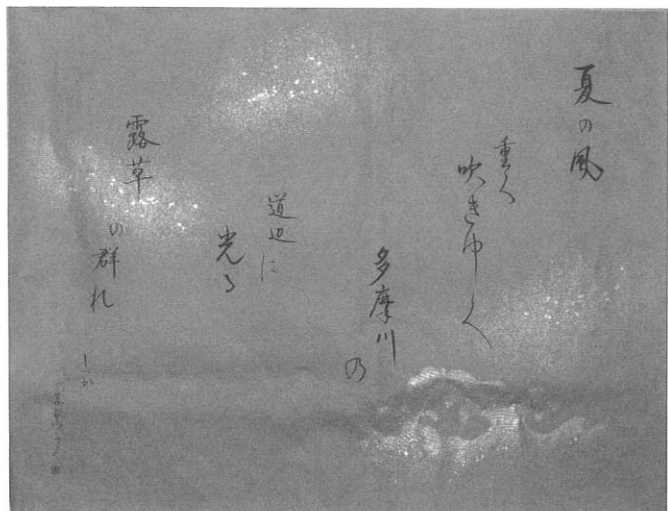 夏の風
重く
吹きゆく
多摩川
の
道辺に
光る
露草
の群れ